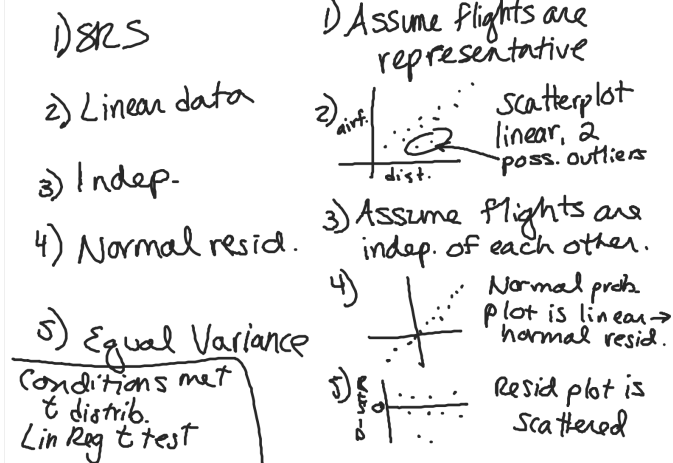 1) SRS
2) Linear data
3) Indep.
4) Normal resid.
5) Equal Variance
Conditions met
t distrib.
Lin Reg t test
1) Assume flights are
representative
2) airf.
dist.
Scatterplot
linear, 2
poss. outliers
3) Assume flights are
indep. of each other.
4)
Normal prob.
plot is linear →
normal resid.
5) RESID
0
Resid plot is
scattered